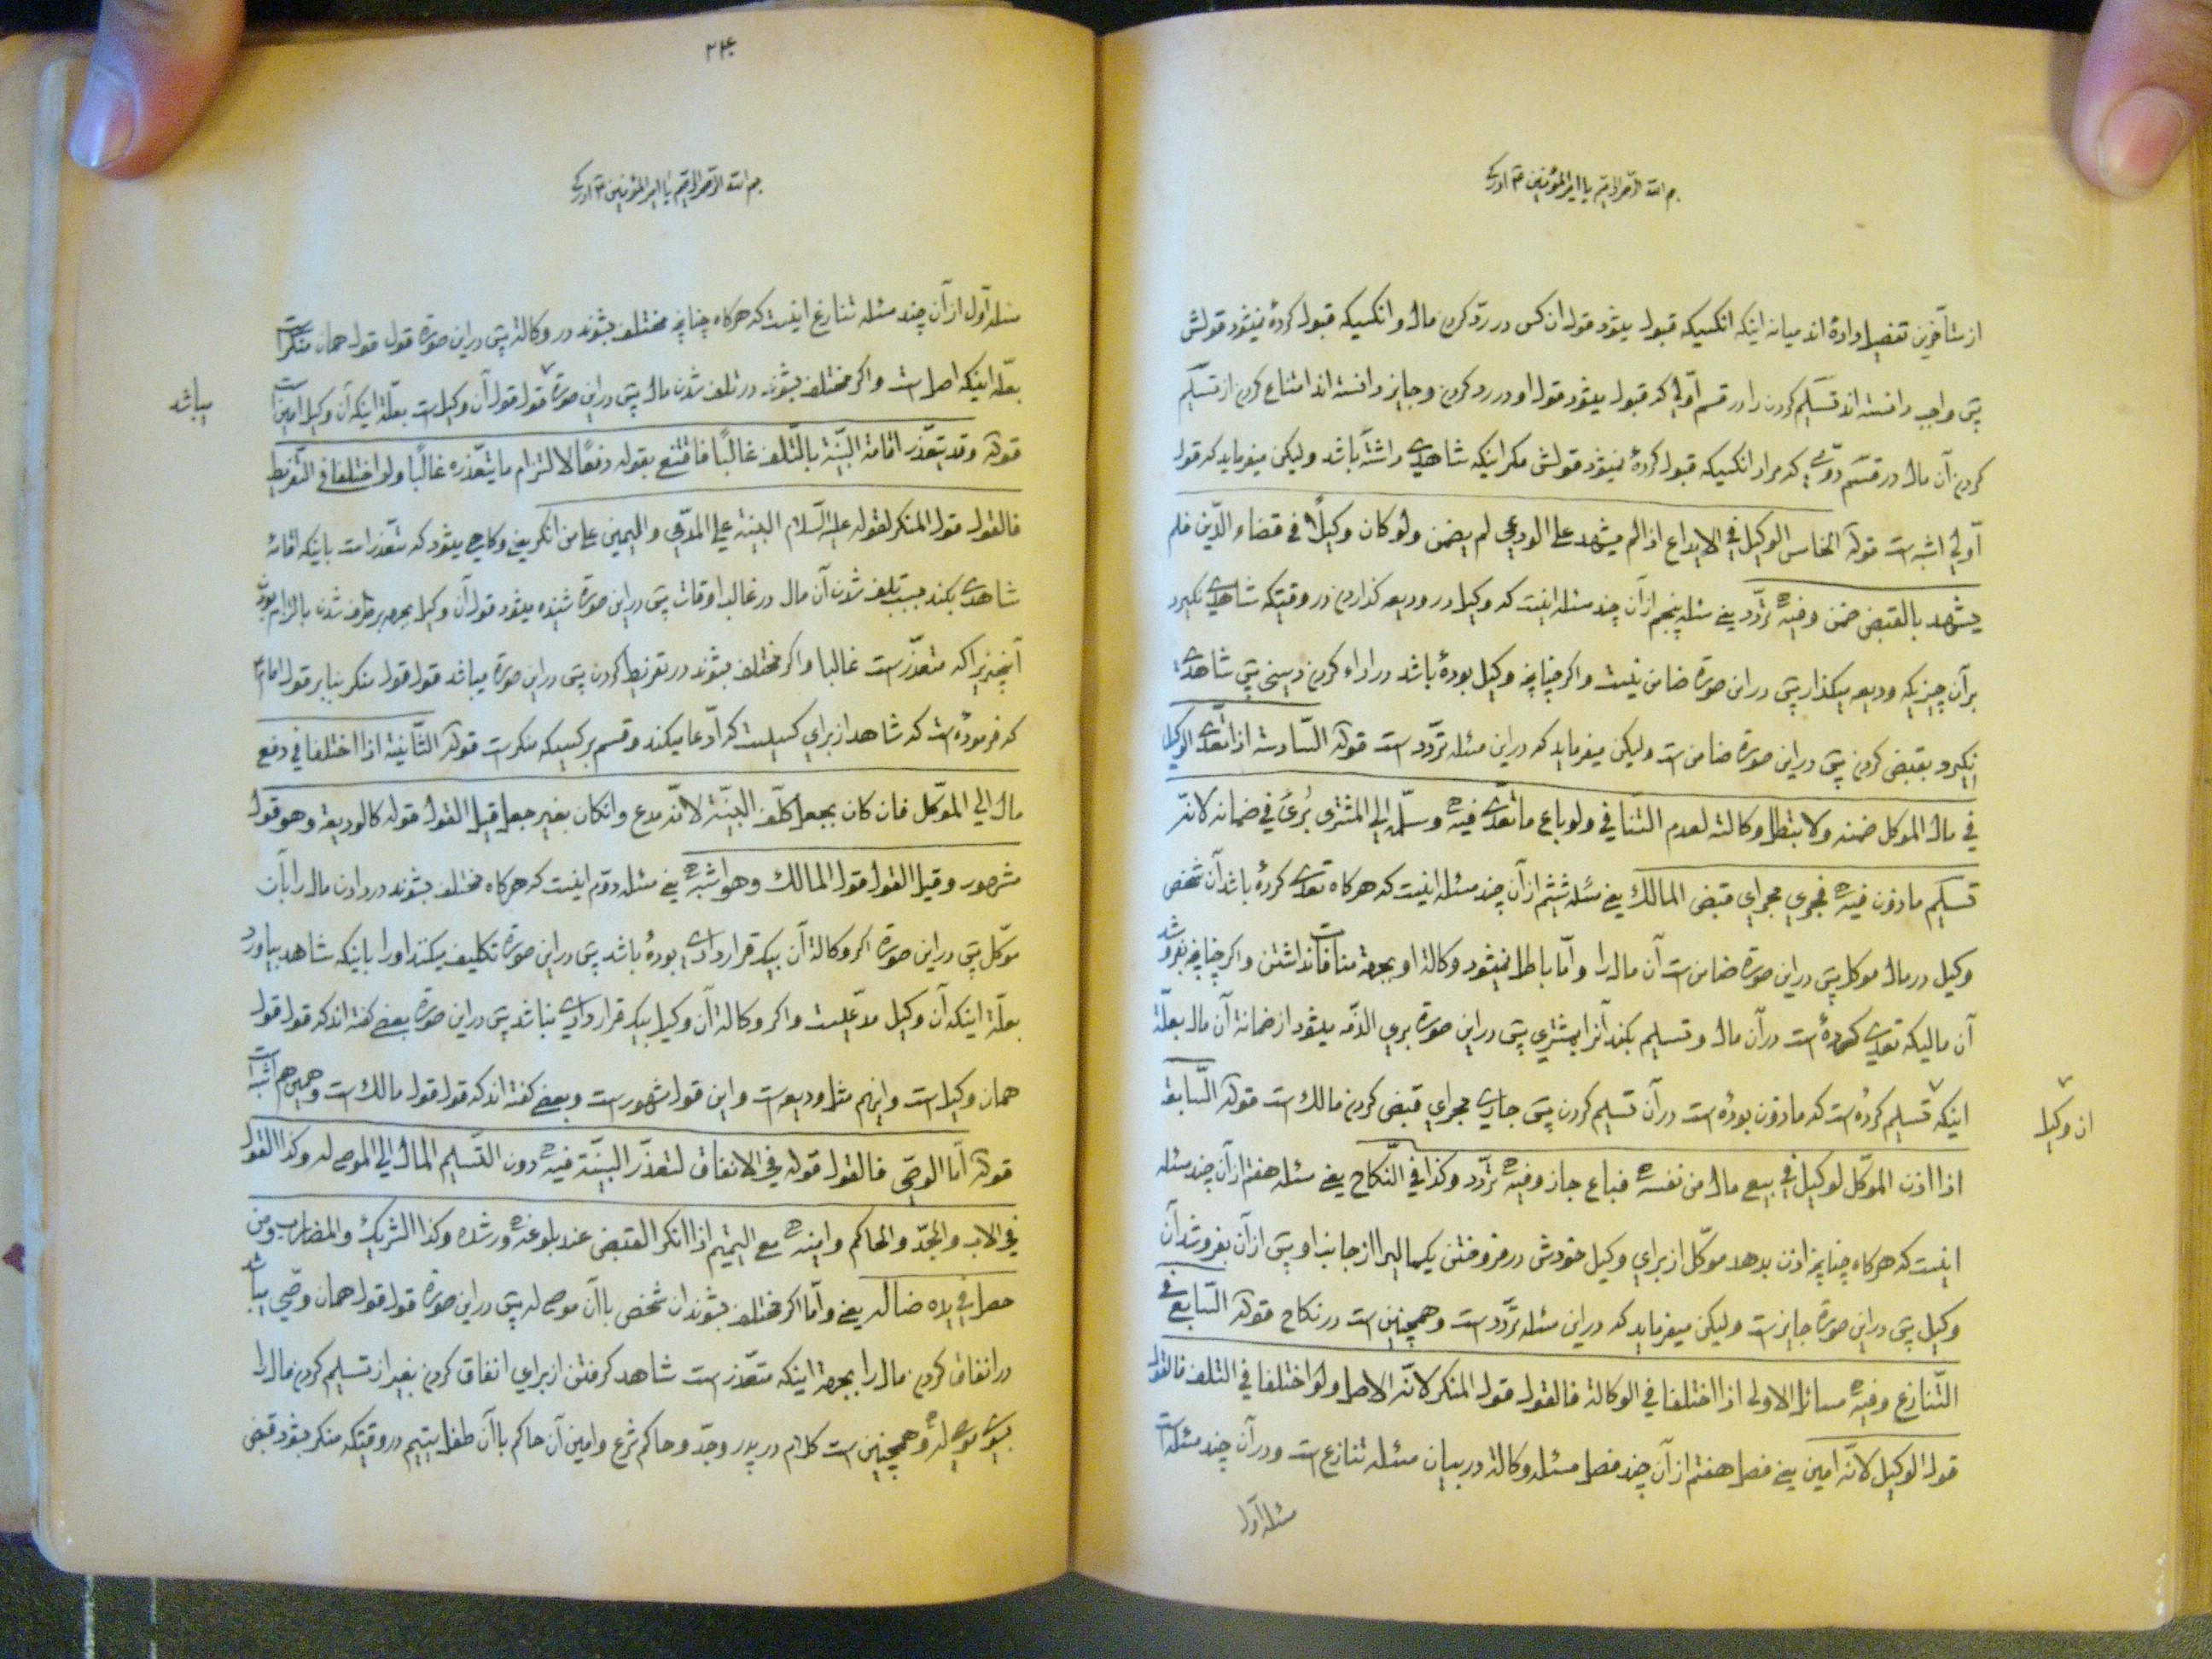 بسم الله الرحمن الرحیم یا امیر المؤمنین ع ادرکنی
از متأخرین تفصیل داده اند میانه اینکه انکسیکه قبول میشود قول ان کس در رد کردن مال و انکسیکه قبول کرده نمیشود قولش
پس واجب دانسته اند تسلیم کردن را در قسم اولی که قبول میشود قول او در رد کردن و جایز دانسته اند امتناع کردن از تسلیم
کردن آن مال در قسم دومی که مراد انکسیکه قبول کرده نمیشود قولش مکر اینکه شاهدی داشته باشد ولیکن میفرماید که قول
اولی اشبه است قوله الخامس الوکیل فی الایداع اذا لم یشهد علی الودعی لم یضمن ولو کان وکیلاً فی قضاء الدین فلم
یشهد بالقبض ضمن وفیه تردد یعنی مسئله پنجم از آن چند مسئله اینست که وکیل در ودیعه کذاردن در وقتیکه شاهدی نکیرد
بر آن چیزیکه ودیعه میکذارد پس در این صورة ضامن نیست واکر چنانچه وکیل بوده باشد در اداء کردن دینی پس شاهدی
نکیرد بقبض کردن پس در این صورة ضامن است ولیکن میفرماید که در این مسئله تردد است قوله السادسة اذا تعدی الوکیل
فی مال الموکل ضمنه ولا یبطل وکالته لعدم التنافی ولو باع ما تعدی فیه وسلمه الی المشتری برئ فی ضمانه لانه
تسلیم ماذون فیه فجری مجرای قبض المالک یعنی مسئله ششم از آن چند مسئله اینست که هرکاه تعدی کرده باشد آن شخص
وکیل در مال موکل پس در این صورة ضامن است آن مال را واما باطل نمیشود وکالة او بجهة منافات نداشتن واکر چنانچه بفروشد
آن مالیکه تعدی کرده است در آن مال و تسلیم بکند آنرا بمشتری پس در این صورة بری الذمه میشود از ضمانة آن مال بعلة
اینکه تسلیم کرده است که ماذون بوده است در آن تسلیم کردن پس جاری مجرای قبض کردن مالک است قوله السابعة
ان وکیل
اذا اذن الموکل لوکیل فی بیع مال من نفسه فباع جاز وفیه تردد وکذا فی النکاح یعنی مسئله هفتم از آن چند مسئله
اینست که هرکاه چنانچه اذن بدهد موکل از برای وکیل خودش در فروختن یکمالیرا از جانب او پس از آن بفروشد آن
وکیل پس در این صورة جایز است ولیکن میفرماید که در این مسئله تردد است و همچنین است در نکاح قوله السابع فی
التنازع وفیه مسائل الاولی اذا اختلفا فی الوکالة فالقول قول المنکر لانه الاصل ولو اختلفا فی التلف فالقول
قول الوکیل لانه امین یعنی فصل هفتم از آن چند فصل مسئله وکالة در بیان مسئله تنازع است و در آن چند مسئله است
مسئله اول
بسم الله الرحمن الرحیم یا امیر المؤمنین ع ادرکنی
مسئله اول از آن چند مسئله تنازع اینست که هرکاه چنانچه مختلف بشوند در وکالة پس در این صورة قول قول همان منکر است
بعلة اینکه اصل است واکر مختلف بشوند در تلف شدن مال پس در این صورة قول قول آن وکیل است بعلة اینکه آن وکیل امین است
میباشد
قوله وقد یتعذر اقامة البینة بالتلف غالباً فاقتنع بقوله دفعاً لالتزام ما یتعذره غالباً ولو اختلفا فی التفریط
فالقول قول المنکر لقوله علیه السلام البینة علی المدعی والیمین علی من انکر یعنی وکاهی میشود که متعذر است باینکه اقامه
شاهدی بکند بسبب تلف شدن آن مال در غالب اوقات پس در این صورة شنیده میشود قول آن وکیل بجهة برطرف شدن بالزام بودن
آنچیزیرا که متعذر است غالبا واکر مختلف بشوند در تفریط کردن پس در این صورة میباشد قول قول منکر بنابر قول امام ع
که فرموده است که شاهد از برای کسیست که ادعا میکند وقسم بر کسیکه منکر است قوله الثانیة اذا اختلفا فی دفع
مال الی الموکل فان کان بجعل کلف البینة لانه مدع وانکان بغیر جعل قیل القول قوله کالودیعة وهو قول
مشهور وقیل القول قول المالک وهو اشبه یعنی مسئله دوم اینست که هرکاه مختلف بشوند در دادن مال را بآن
موکل پس در این صورة اکر وکالة آن بیک قراردادی بوده باشد پس در این صورة تکلیف میکند او را باینکه شاهد بیاورد
بعلة اینکه آن وکیل مدعیست واکر وکالة آن وکیل بیک قراردادی نباشد پس در این صورة بعضی کفته اند که قول قول
همان وکیل است واینهم مثل ودیعه است واین قول مشهور است وبعضی کفته اند که قول قول مالک است وهمین هم اشبه است
قوله اما الوصی فالقول قوله فی الانفاق لتعذر البینة فیه دون التسلیم المال الی الموصی له وکذا القول
فی الاب والجد والحاکم وامینه مع الیتیم اذا انکر القبض عند بلوغه ورشده وکذا الشریک والمضارب ومن
حصل فی یده ضاله یعنی واما اکر مختلف بشوند ان شخص با آن موصی له پس در این صورة قول قول همان وصی میباشد
در انفاق کردن مال را بجهة اینکه متعذر است شاهد کرفتن از برای انفاق کردن بغیر از تسلیم کردن مال را
بسوی موصی له وهمچنین است کلام در پدر وجد وحاکم شرع وامین آن حاکم با آن طفل یتیم در وقتیکه منکر بشود قبض